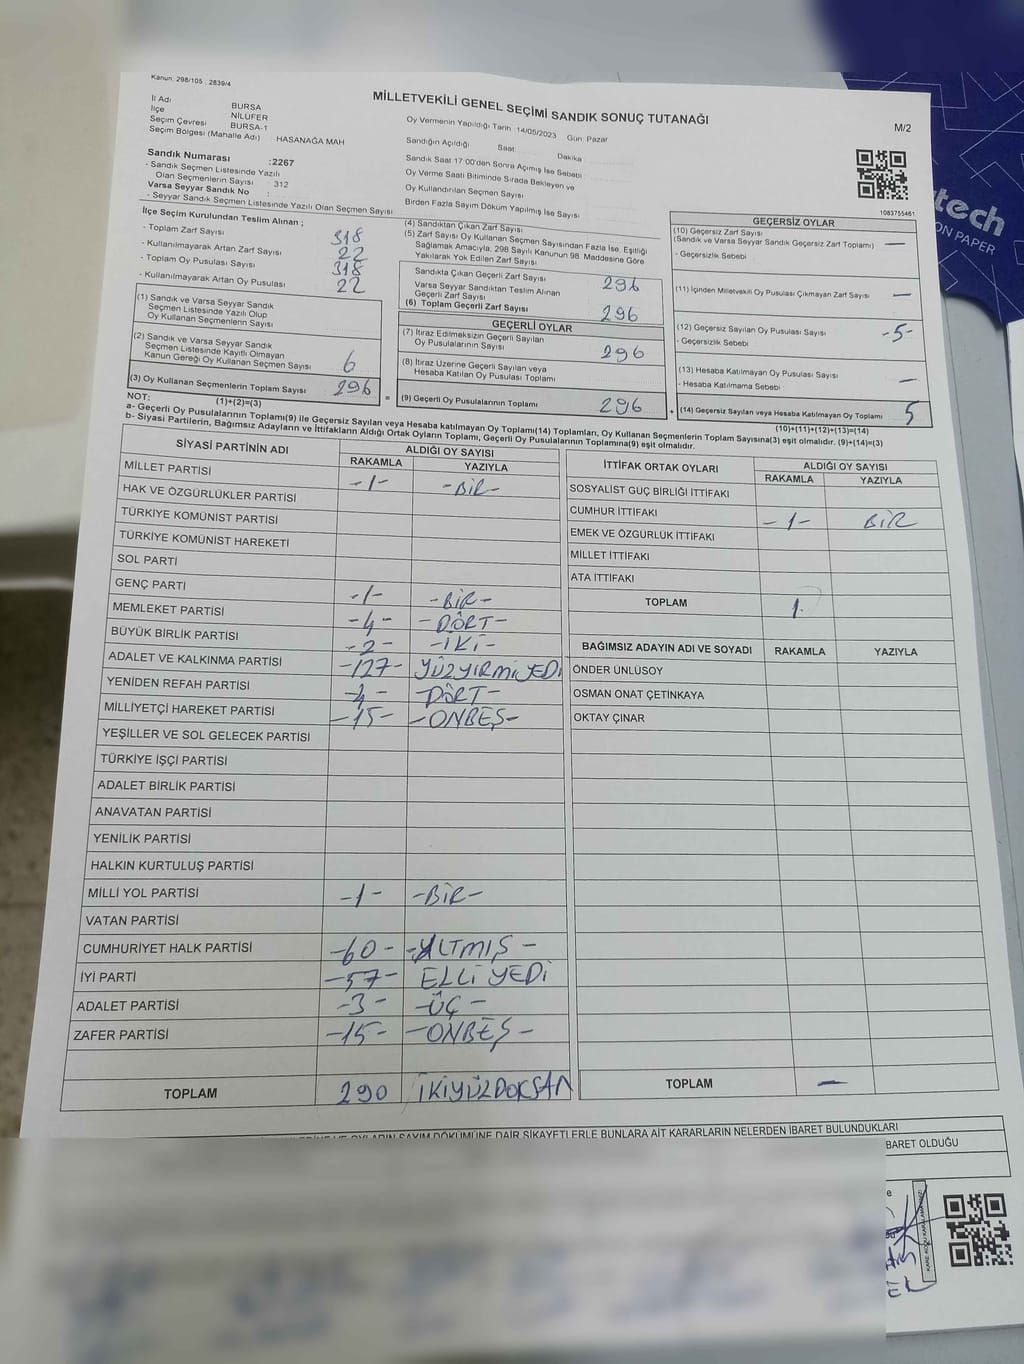 Kanun. 298/105 , 2839/4
MİLLETVEKİLİ GENEL SEÇİMİ SANDIK SONUÇ TUTANAĞI
M/2
İl Adı BURSA
İlçe NİLÜFER
Seçim Çevresi BURSA-1
Seçim Bölgesi (Mahalle Adı) HASANAĞA MAH
Sandık Numarası :2267
- Sandık Seçmen Listesinde Yazılı
Olan Seçmenlerin Sayısı : 312
Varsa Seyyar Sandık No :
- Seyyar Sandık Seçmen Listesinde Yazılı Olan Seçmen Sayısı
Oy Vermenin Yapıldığı Tarih : 14/05/2023 Gün: Pazar
Sandığın Açıldığı Saat Dakika
Sandık Saat 17:00'den Sonra Açımış İse Sebebi
Oy Verme Saati Bitiminde Sırada Bekleyen ve
Oy Kullandırılan Seçmen Sayısı
Birden Fazla Sayım Döküm Yapılmış İse Sayısı
1083755461
tech
ON PAPER
İlçe Seçim Kurulundan Teslim Alınan ;
- Toplam Zarf Sayısı 318
- Kullanılmayarak Artan Zarf Sayısı 22
- Toplam Oy Pusulası Sayısı 318
- Kullanılmayarak Artan Oy Pusulası 22
(1) Sandık ve Varsa Seyyar Sandık
Seçmen Listesinde Yazılı Olup
Oy Kullanan Seçmenlerin Sayısı
(2) Sandık ve Varsa Seyyar Sandık
Seçmen Listesinde Kayıtlı Olmayan
Kanun Gereği Oy Kullanan Seçmen Sayısı 6
(3) Oy Kullanan Seçmenlerin Toplam Sayısı 296
(1)+(2)=(3)
=
(4) Sandıktan Çıkan Zarf Sayısı
(5) Zarf Sayısı Oy Kullanan Seçmen Sayısından Fazla İse, Eşitliği
Sağlamak Amacıyla, 298 Sayılı Kanunun 98. Maddesine Göre
Yakılarak Yok Edilen Zarf Sayısı
Sandıkta Çıkan Geçerli Zarf Sayısı 296
Varsa Seyyar Sandıktan Teslim Alınan
Geçerli Zarf Sayısı
(6) Toplam Geçerli Zarf Sayısı 296
GEÇERLİ OYLAR
(7) İtiraz Edilmeksizin Geçerli Sayılan
Oy Pusulalarının Sayısı 296
(8) İtiraz Üzerine Geçerli Sayılan veya
Hesaba Katılan Oy Pusulası Toplamı
(9) Geçerli Oy Pusulalarının Toplamı 296
+
GEÇERSİZ OYLAR
(10) Geçersiz Zarf Sayısı
(Sandık ve Varsa Seyyar Sandık Geçersiz Zarf Toplamı) —
- Geçersizlik Sebebi
(11) İçinden Milletvekili Oy Pusulası Çıkmayan Zarf Sayısı —
(12) Geçersiz Sayılan Oy Pusulası Sayısı -5-
- Geçersizlik Sebebi
(13) Hesaba Katılmayan Oy Pusulası Sayısı —
- Hesaba Katılmama Sebebi
(14) Geçersiz Sayılan veya Hesaba Katılmayan Oy Toplamı 5
(10)+(11)+(12)+(13)=(14)
NOT:
a- Geçerli Oy Pusulalarının Toplamı(9) ile Geçersiz Sayılan veya Hesaba katılmayan Oy Toplamı(14) Toplamları, Oy Kullanan Seçmenlerin Toplam Sayısına(3) eşit olmalıdır. (9)+(14)=(3)
b- Siyasi Partilerin, Bağımsız Adayların ve İttifakların Aldığı Ortak Oyların Toplamı, Geçerli Oy Pusulalarının Toplamına(9) eşit olmalıdır.
SİYASİ PARTİNİN ADI ALDIĞI OY SAYISI
RAKAMLA YAZIYLA
MİLLET PARTİSİ -1- -BİR-
HAK VE ÖZGÜRLÜKLER PARTİSİ
TÜRKİYE KOMÜNİST PARTİSİ
TÜRKİYE KOMÜNİST HAREKETİ
SOL PARTİ
GENÇ PARTİ -1- -BİR-
MEMLEKET PARTİSİ -4- -DÖRT-
BÜYÜK BİRLİK PARTİSİ -2- -İKİ-
ADALET VE KALKINMA PARTİSİ -127- YÜZYİRMİYEDİ
YENİDEN REFAH PARTİSİ -4- -DÖRT-
MİLLİYETÇİ HAREKET PARTİSİ -15- -ONBEŞ-
YEŞİLLER VE SOL GELECEK PARTİSİ
TÜRKİYE İŞÇİ PARTİSİ
ADALET BİRLİK PARTİSİ
ANAVATAN PARTİSİ
YENİLİK PARTİSİ
HALKIN KURTULUŞ PARTİSİ
MİLLİ YOL PARTİSİ -1- -BİR-
VATAN PARTİSİ
CUMHURİYET HALK PARTİSİ -60- -ALTMIŞ-
İYİ PARTİ -57- ELLİ YEDİ
ADALET PARTİSİ -3- -ÜÇ-
ZAFER PARTİSİ -15- -ONBEŞ-
TOPLAM 290 İKİYÜZDOKSAN
İTTİFAK ORTAK OYLARI ALDIĞI OY SAYISI
RAKAMLA YAZIYLA
SOSYALİST GÜÇ BİRLİĞİ İTTİFAKI
CUMHUR İTTİFAKI -1- BİR
EMEK VE ÖZGÜRLÜK İTTİFAKI
MİLLET İTTİFAKI
ATA İTTİFAKI
TOPLAM 1.
BAĞIMSIZ ADAYIN ADI VE SOYADI RAKAMLA YAZIYLA
ÖNDER ÜNLÜSOY
OSMAN ONAT ÇETİNKAYA
OKTAY ÇINAR
TOPLAM —
VE OYLARIN SAYIM DÖKÜMÜNE DAİR ŞİKAYETLERLE BUNLARA AİT KARARLARIN NELERDEN İBARET BULUNDUKLARI
BARET OLDUĞU